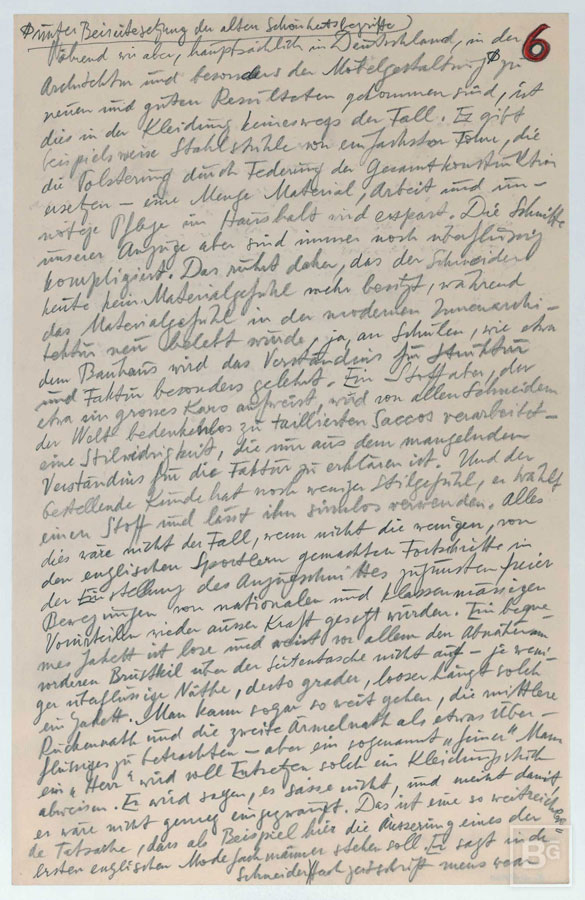 ∅ unter Beiseitesetzung der alten Schönheitsbegriffe)
6
Während wir aber, hauptsächlich in Deutschland, in der
Architektur und besonders der Möbelgestaltung ∅ zu
neuen und guten Resultaten gekommen sind, ist
dies in der Kleidung keineswegs der Fall. Es gibt
beispielsweise Stahlstühle von einfachster Form, die
die Polsterung durch Federung der Gesamtkonstruktion
ersetzen – eine Menge Material, Arbeit und un-
nötige Pflege im Haushalt wird erspart. Die Schnitte
unserer Anzüge aber sind immer noch überflüssig
kompliziert. Das rührt daher, das der Schneider
heute kein Materialgefühl mehr besitzt, während
das Materialgefühl in der modernen Innenarchi-
tektur neu belebt wurde, ja, an Schulen, wie etwa
dem Bauhaus wird das Verständnis für Struktur
und Faktur besonders gelehrt. Ein Stoff aber, der
etwa ein grosses Karo aufweist, wird von allen Schneidern
der Welt bedenkenlos zu taillierten Saccos verarbeitet –
eine Stilwidrigkeit, die nur aus dem mangelnden
Verständnis für die Faktur zu erklären ist. Und der
bestellende Kunde hat noch weniger Stilgefühl, er wählt
einen Stoff und lässt ihn sinnlos verwenden. Alles
dies wäre nicht der Fall, wenn nicht die wenigen, von
den englischen Sportlern gemachten Fortschritte in
der Einstellung des Anzugschnittes zugunsten freier
Bewegungen von nationalen und klassenmässigen
Vorurteilen wieder ausser Kraft gesetzt würden. Ein beque-
mes Jakett ist lose und weist vor allem den Abnäher am
vorderen Brustteil über der Seitentasche nicht auf – je weni-
ger überflüssige Näthe, desto grader, looser hängt solch
ein Jakett. Man kann sogar so weit gehen, die mittlere
Rückennath und die zweite Ärmelnath als etwas Über-
flüssiges zu betrachten – aber ein sogenannt "feiner" Mann
ein "Herr" wird voll Entsetzen solch ein Kleidungsstück
abweisen. Er wird sagen, es sässe nicht, und meint damit,
es wäre nicht genug eingezwängt. Das ist eine so weitreichen-
de Tatsache, dass als Beispiel hier die Äusserung eines der
ersten englischen Modefachmänner stehen soll. Er sagt in der
Schneiderfachzeitschrift mens wear
BG